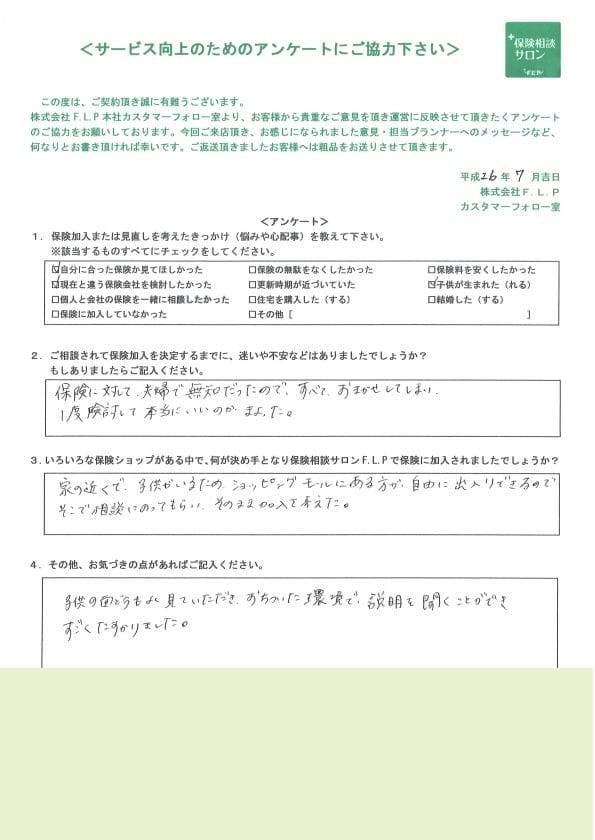 ＜サービス向上のためのアンケートにご協力下さい＞
+保険相談
サロン
F.L.P
この度は、ご契約頂き誠に有難うございます。
株式会社F.L.P本社カスタマーフォロー室より、お客様から貴重なご意見を頂き運営に反映させて頂きたくアンケート
のご協力をお願いしております。今回ご来店頂き、お感じになられました意見・担当プランナーへのメッセージなど、
何なりとお書き頂ければ幸いです。ご返送頂きましたお客様へは粗品をお送りさせて頂きます。
平成26年7月吉日
株式会社F.L.P
カスタマーフォロー室
＜アンケート＞
1．保険加入または見直しを考えたきっかけ（悩みや心配事）を教えて下さい。
※該当するものすべてにチェックをしてください。
☑自分に合った保険か見てほしかった □保険の無駄をなくしたかった □保険料を安くしたかった
☑現在と違う保険会社を検討したかった □更新時期が近づいていた ☑子供が生まれた（れる）
□個人と会社の保険を一緒に相談したかった □住宅を購入した（する） □結婚した（する）
□保険に加入していなかった □その他［ ］
2．ご相談されて保険加入を決定するまでに、迷いや不安などはありましたでしょうか？
もしありましたらご記入ください。
保険に対して、夫婦で無知だったので、すべて、おまかせしてしまい、
1度険討して本当にいいのか、まよった。
3．いろいろな保険ショップがある中で、何が決め手となり保険相談サロンF.L.Pで保険に加入されましたでしょうか？
家の近くで、子供がいるため、ショッピングモールにある方が、自由に出入りできるので
そこで相談にのってもらい、そのまま加入を考えた。
4．その他、お気づきの点があればご記入ください。
子供の面どうもよく見ていただき、おちついた環境で、説明を聞くことができ
すごくたすかりました。